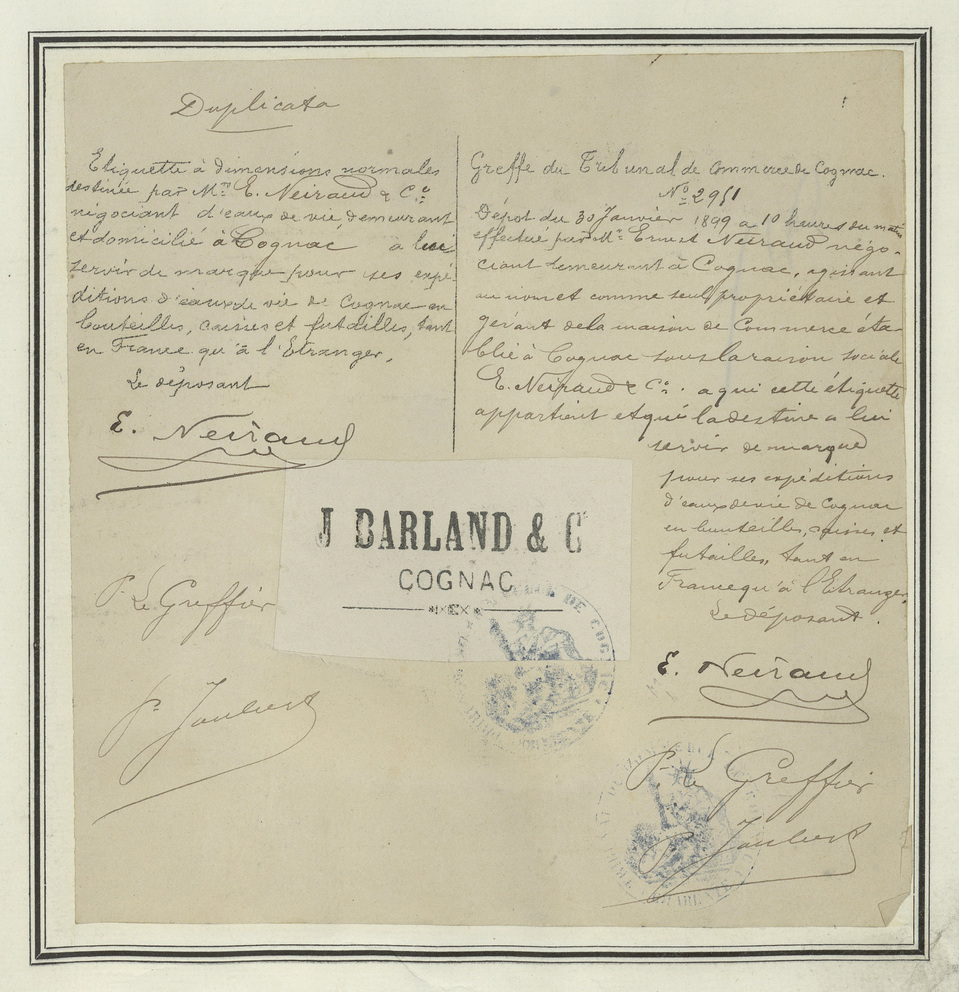 Duplicata
Etiquette à dimensions normales
destinée par Mr. E. Neiraud & Cie.
négociant d'eaux de vie demeurant
et domicilié à Cognac à lui
servir de marque pour ses expé-
ditions d'eaux de vie de Cognac en
bouteilles, caisses et futailles, tant
en France qu'à l'Etranger.
Le déposant
E. Neiraud
P. Le Greffier
P. Joubert
Greffe du Tribunal de Commerce de Cognac.
No. 2951
Dépot du 30 Janvier 1899 a 10 heures du matin
effectué par Mr. Ernest Neiraud négo-
ciant demeurant à Cognac, agissant
au nom et comme seul propriétaire et
gérant de la maison de Commerce éta-
blie à Cognac sous la raison sociale
E. Neiraud & Co. a qui cette étiquette
appartient et qui la destine a lui
servir de marque
pour ses expéditions
d'eaux de vie de Cognac
en bouteilles, caisses et
futailles, tant en
France qu'à l'Etranger.
Le déposant.
E. Neiraud
P. Le Greffier
P. Joubert
J BARLAND & C
COGNAC
DE COGNAC